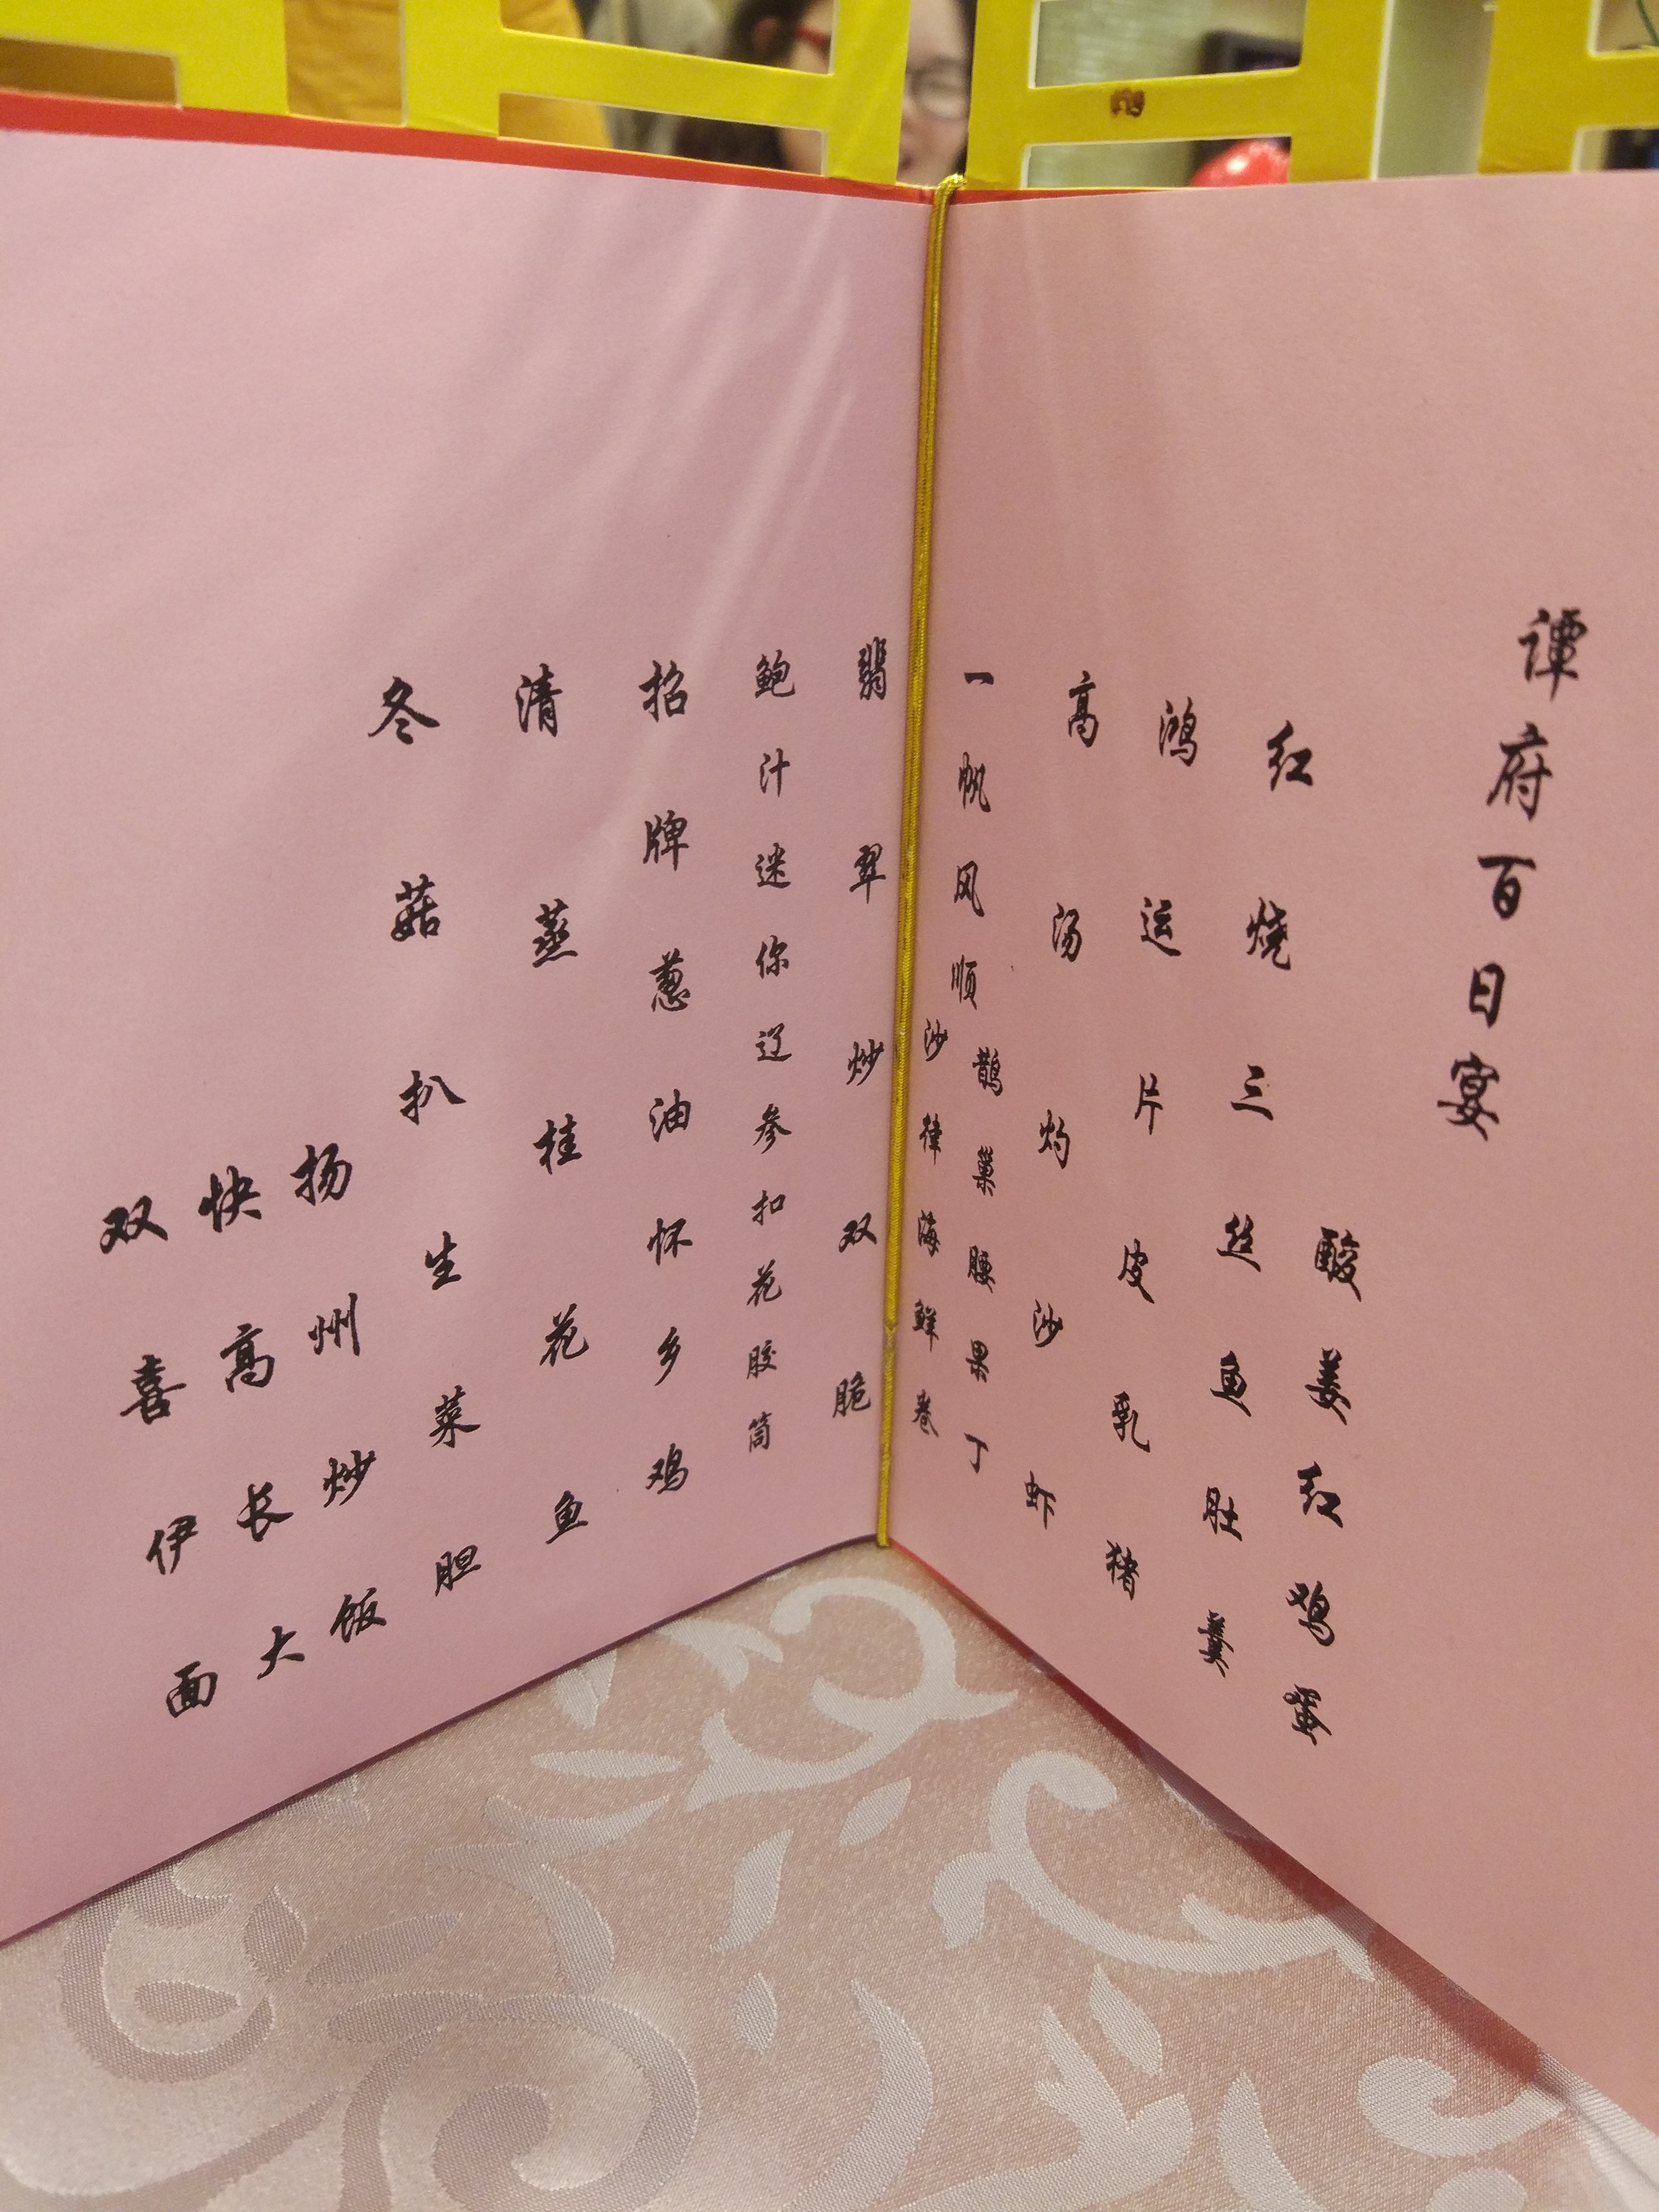 谭府百日宴
酸姜红鸡蛋
红烧三丝鱼肚羹
鸿运片皮乳猪
高汤灼沙虾
一帆风顺
鹊巢腰果丁
沙律海鲜卷
翡翠炒双脆
鲍汁迷你辽参扣花胶筒
招牌葱油怀乡鸡
清蒸桂花鱼
冬菇扒生菜胆
扬州炒饭
快高长大
双喜伊面